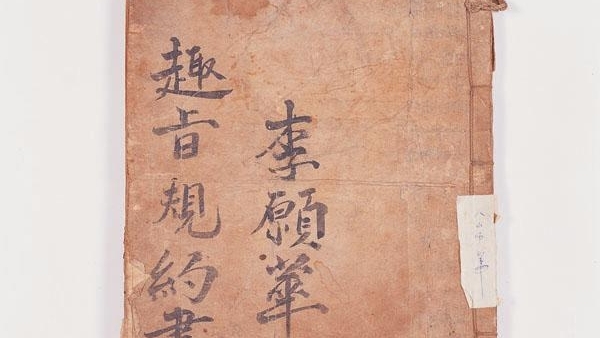 李願華
趣旨規約書